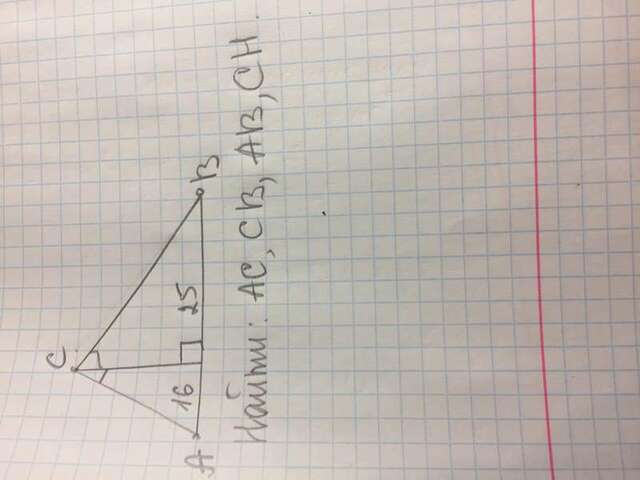 C
A 16 25 B
Найти: AC, CB, AB, CH.